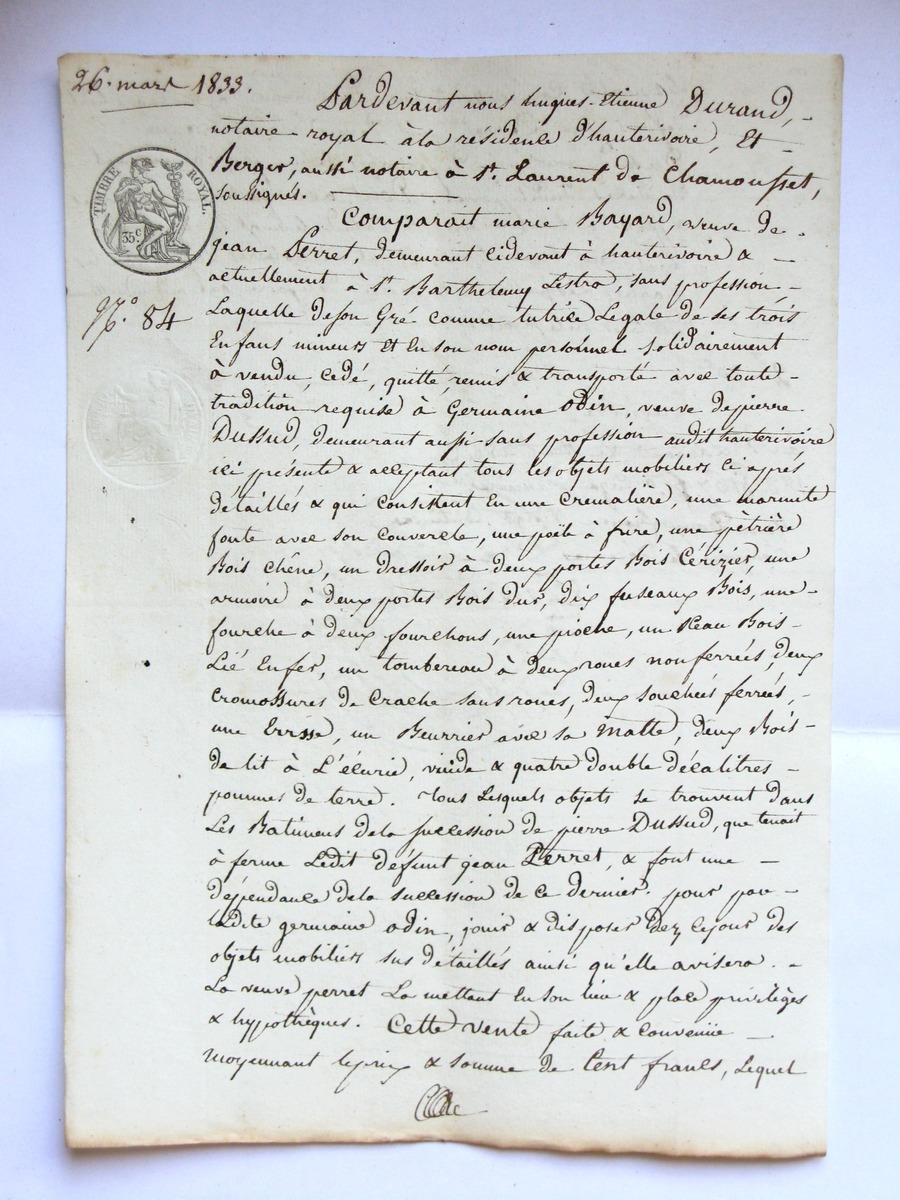 26. mars 1833.
Pardevant nous hugues-Etienne Durand,
notaire royal à la résidence d'hauterivoire, Et
Berger, aussi notaire à St. Laurent de Chamousset,
soussignés.
TIMBRE ROYAL.
35 c
Comparait marie Bayard, veuve de
jean Perret, demeurant cidevant à hauterivoire &
actuellement à St. Barthelemy Lestra, sans profession
N.° 84
Laquelle de son Gré comme tutrice Legale de ses trois
Enfans mineurs Et En son nom personnel solidairement
à vendu, cedé, quitté, remis & transporté avec toute
tradition requise à Germaine Odin, veuve de pierre
Dussud, demeurant aussi sans profession audit hauterivoire
ici présente & acceptant tous les objets mobiliers ci après
détaillés & qui consistent En une Cremalière, une marmite
fonte avec son couvercle, une poële à frire, une pètrière
Bois chêne, un dressoir à deux portes Bois Cérizier, une
armoire à deux portes Bois dur, dix fuseaux Bois, une
fourche à deux fourchons, une pioche, un seau Bois
Lié En fer, un tombereau à deux roues non ferrées, deux
de sans roues, deux ferrées,
une, un Beurrier avec sa matte, deux Bois
de lit à L'écurie, & quatre double décalitres
pommes de terre. Tous Lesquels objets se trouvent dans
Les Batimens de la succession de pierre Dussud, que tenait
à ferme Ledit défunt jean Perret, & font une
dépendance de la succession de ce dernier. pour par
Ladite germaine Odin, jouir & disposer dez ce jour des
objets mobiliers sus détaillés ainsi qu'elle avisera.
La veuve perret La mettant En son lieu & place privilèges
& hypothèques. Cette vente faite & convenue
moyennant le prix & somme de Cent francs, Lequel